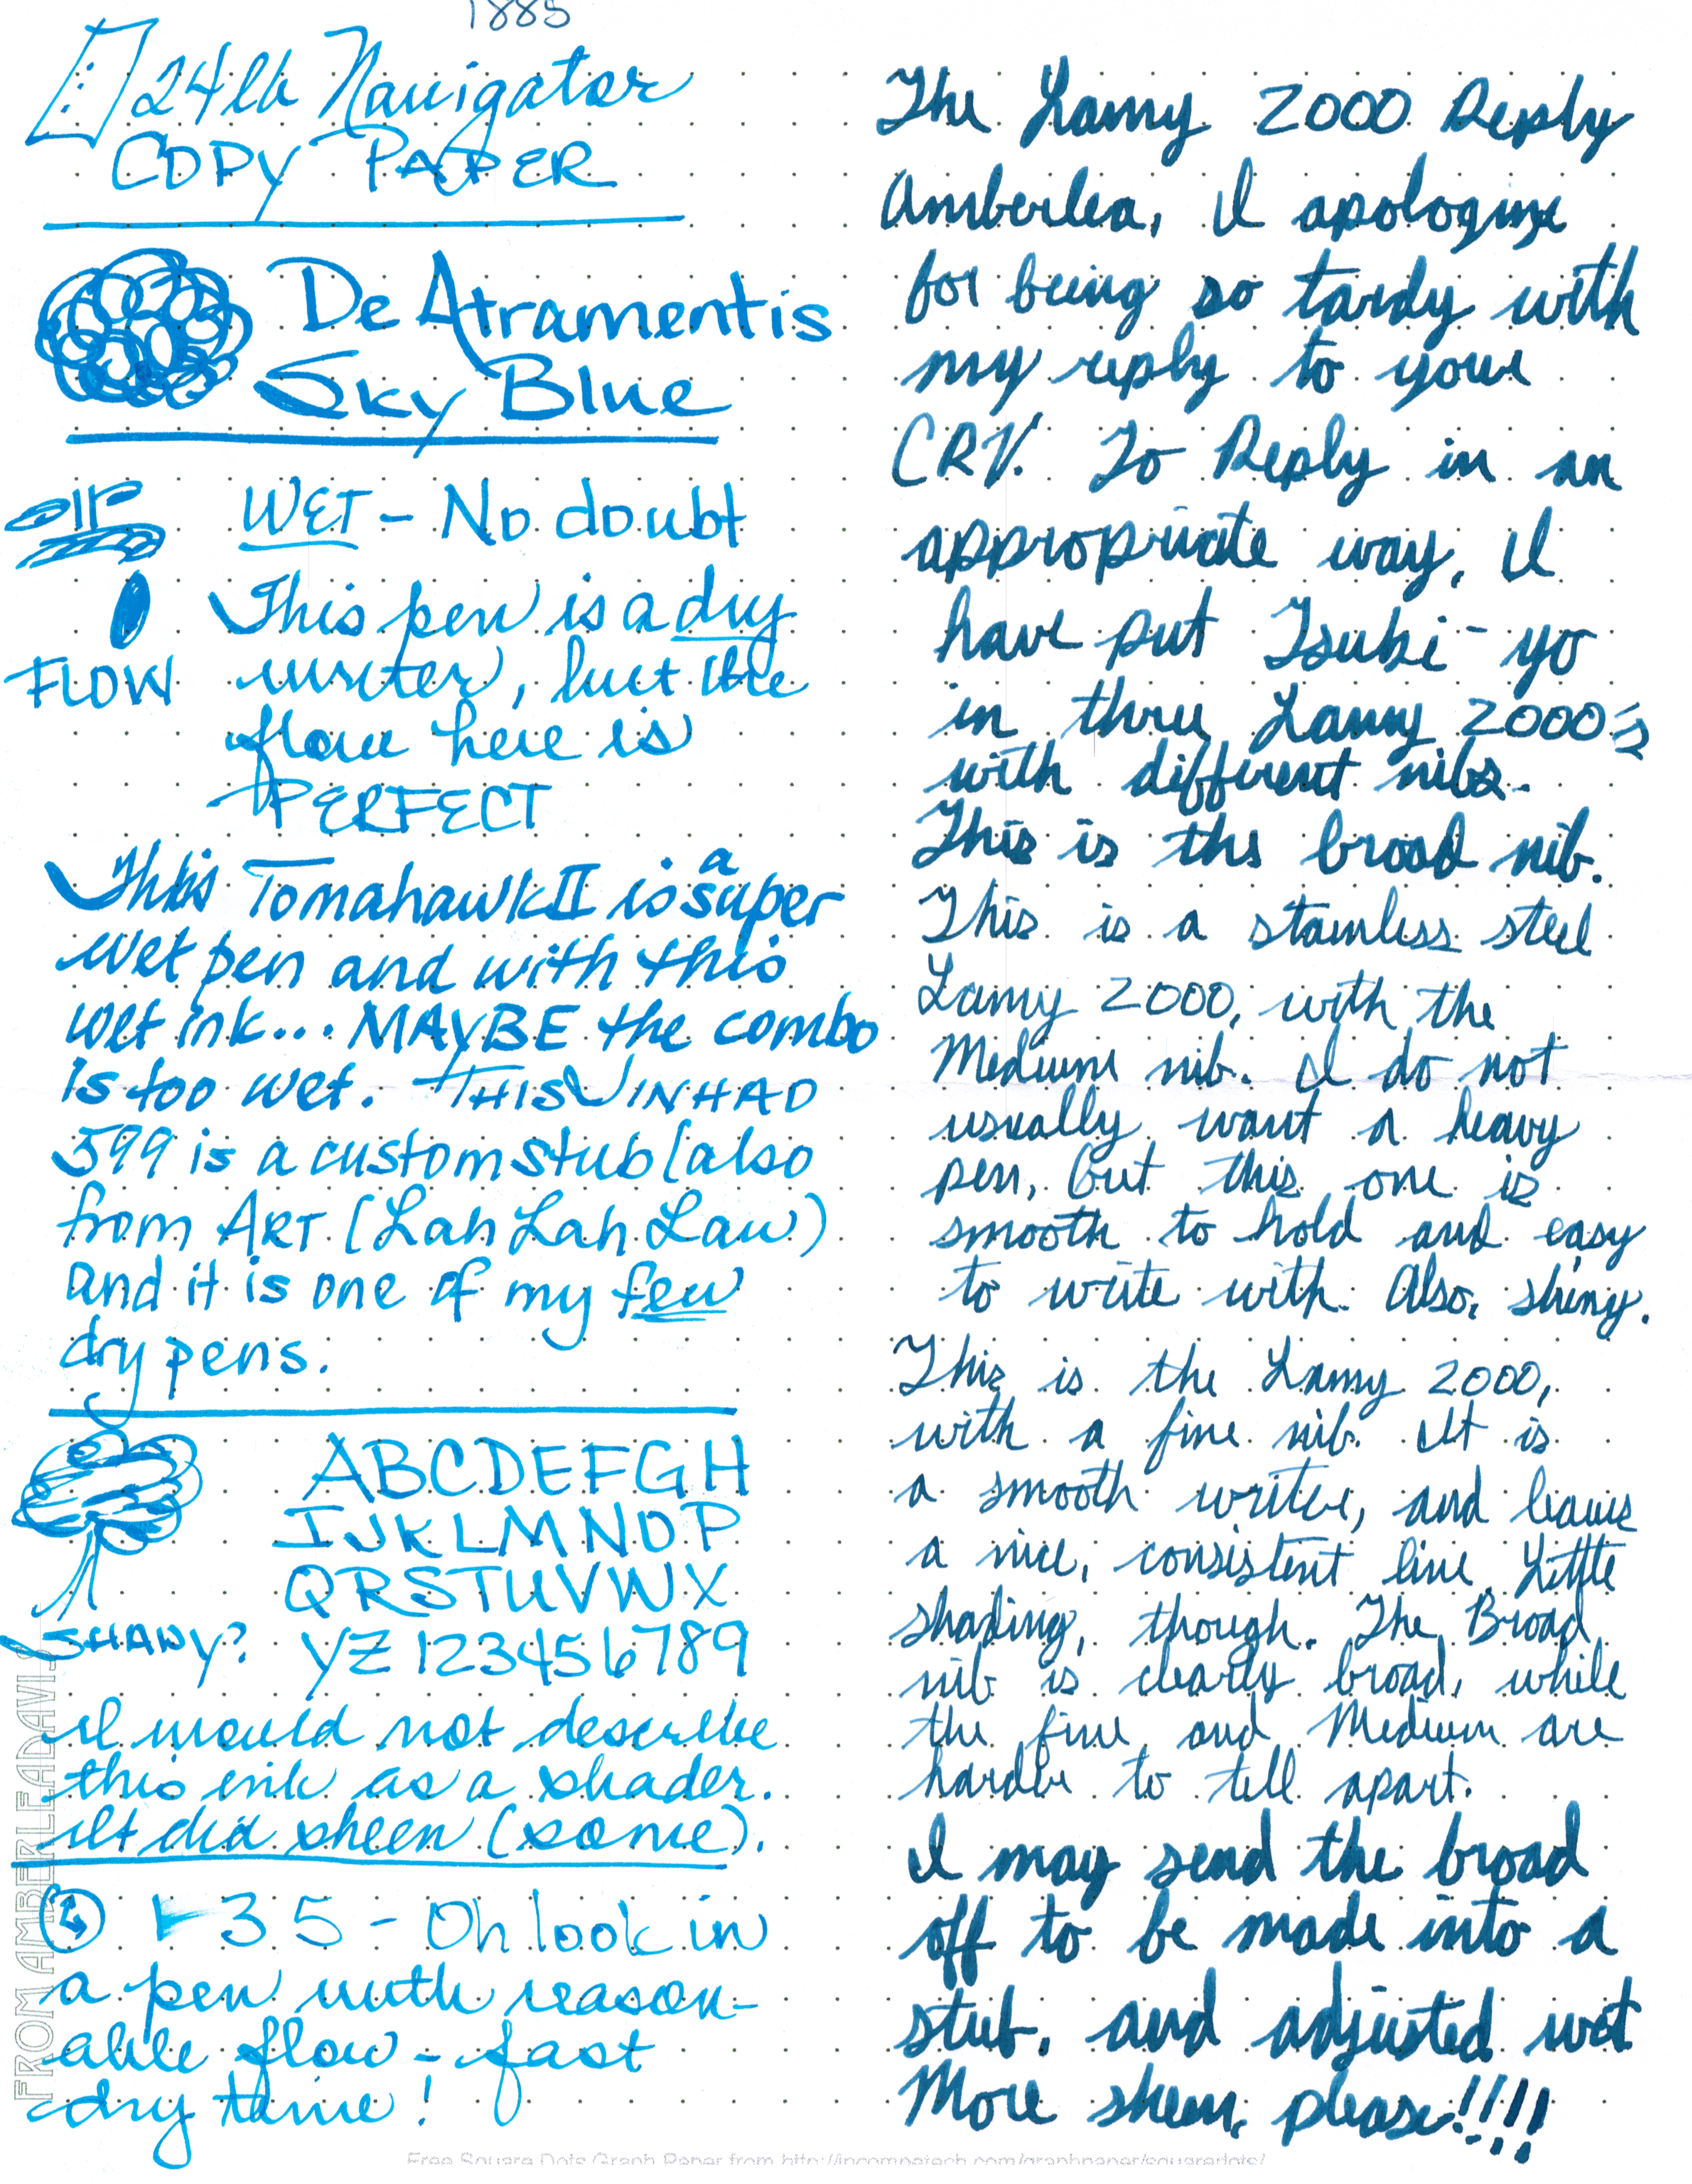 1885
24lb Navigator
COPY PAPER
De Atramentis
Sky Blue
WET - No doubt
This pen is a dry
writer, but the
FLOW
flow here is
PERFECT
This Tomahawk II is a super
wet pen and with this
wet ink... MAYBE the combo
is too wet. THIS JINHAO
599 is a custom stub (also
from ART (Lah Lah Law)
and it is one of my few
dry pens.
ABCDEFGH
IJKLMNOP
QRSTUVWX
SHADY? YZ 123456789
I would not describe
this ink as a shader.
It did sheen (some).
35 - Oh look in
a pen with reason-
able flow - fast
dry time!
FROM AMBERLEADAVIS
The Lamy 2000 Reply
Amberlea, I apologize
for being so tardy with
my reply to your
CRV. To Reply in an
appropriate way, I
have put Tsuki-yo
in thru Lamy 2000's
with different nibs.
This is the broad nib.
This is a stainless steel
Lamy 2000, with the
Medium nib. I do not
usually want a heavy
pen, but this one is
smooth to hold and easy
to write with. Also, shiny.
This is the Lamy 2000,
with a fine nib. It is
a smooth writer, and leaves
a nice, consistent line. Little
shading, though. The Broad
nib is clearly broad, while
the fine and Medium are
harder to tell apart.
I may send the broad
off to be made into a
stub, and adjusted wet
More sheen, please!!!!
Free Square Dots Graph Paper from http://incompetech.com/graphpaper/squaredots/